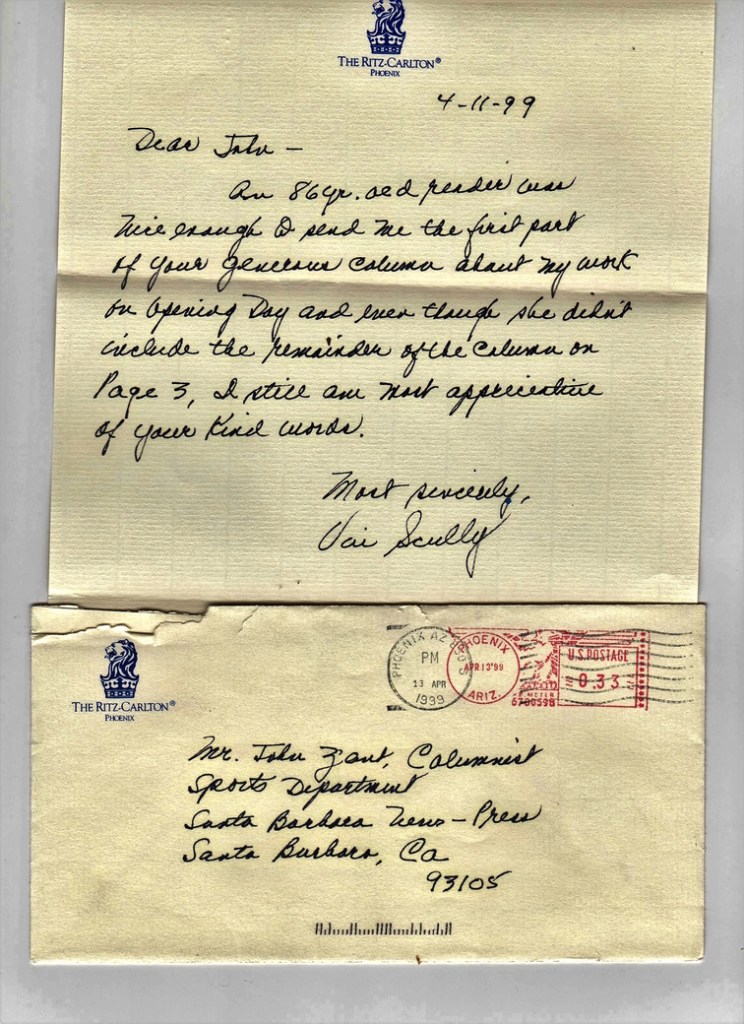 THE RITZ-CARLTON®
PHOENIX
4-11-99
Dear John —
An 86 yr. old reader was
nice enough to send me the first part
of your generous column about my work
on Opening Day and even though she didn't
include the remainder of the column on
Page 3, I still am most appreciative
of your kind words.
Most sincerely,
Vin Scully
THE RITZ-CARLTON®
PHOENIX
PHOENIX AZ
PM
13 APR
1999
PHOENIX
APR 13'99
ARIZ.
U.S. POSTAGE
0.33
METER
6780598
Mr. John Zant, Columnist
Sports Department
Santa Barbara News-Press
Santa Barbara, Ca
93105